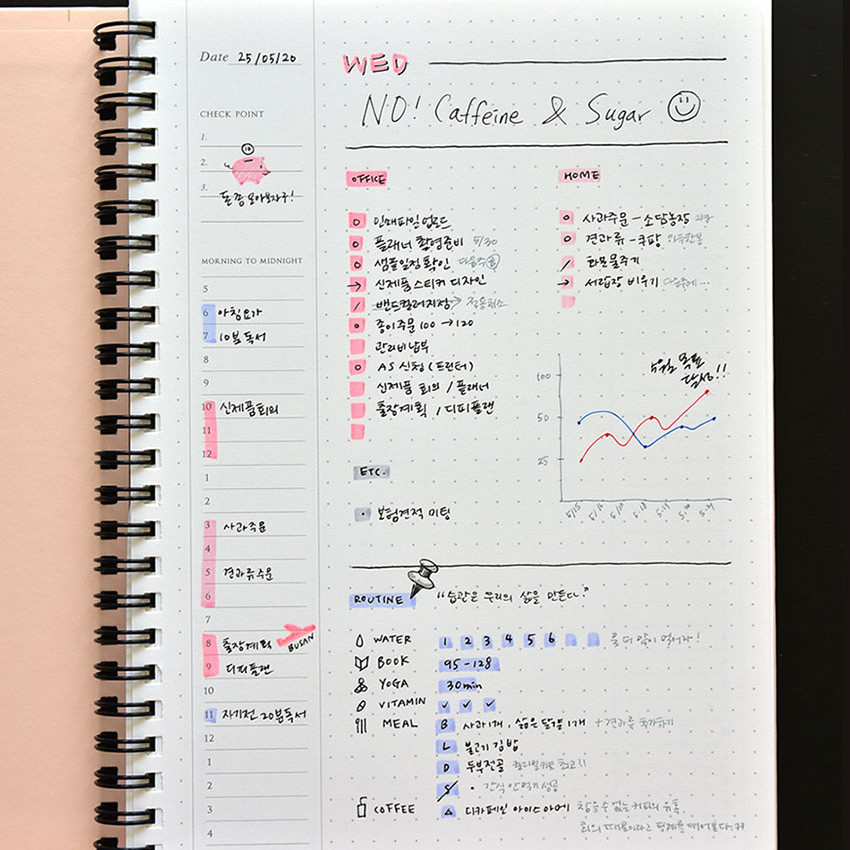 Date 25/05/20
CHECK POINT
1.
2.
3.
10
돈 좀 모아보자구!
MORNING TO MIDNIGHT
5
6 아침요가
7 10분 독서
8
9
10 신제품회의
11
12
1
2
3 사과주문
4
5 견과류주문
6
7
8 출장계획 BUSAN
9 디피플랜
10
11 자기전 20분독서
12
1
2
3
4
WED
NO! Caffeine & Sugar
OFFICE
인쇄파일 업로드
플래너 촬영준비 5/30
샘플일정확인 다음주
신제품스티커 디자인
밴드컬러지정 → 적용취소
종이주문 100 → 120
관리비납부
AS 신청 (프린터)
신제품 회의 / 플래너
출장계획 / 디피플랜
ETC.
보험견적 미팅
HOME
사과주문 - 소담농장
견과류 - 쿠팡
화분물주기
서랍장 비우기 다음주에...
5월 목표 달성!!
100
50
25
5/15 5/16
ROUTINE "습관은 우리의 삶을 만든다."
WATER 1 2 3 4 5 6 물 더 많이 먹어라!
BOOK 95-128
YOGA 30min
VITAMIN ✓ ✓ ✓
MEAL B 사과1개, 삶은 달걀 1개 + 견과류 추가하기
L 불고기 김밥
D 두부전골 최고!!
S • 간식 안먹기 성공
COFFEE △ 디카페인 아이스아메 참을 수 없는 커피의 유혹
회의 때문이라고 핑계를 대어본다.ㅋㅋ